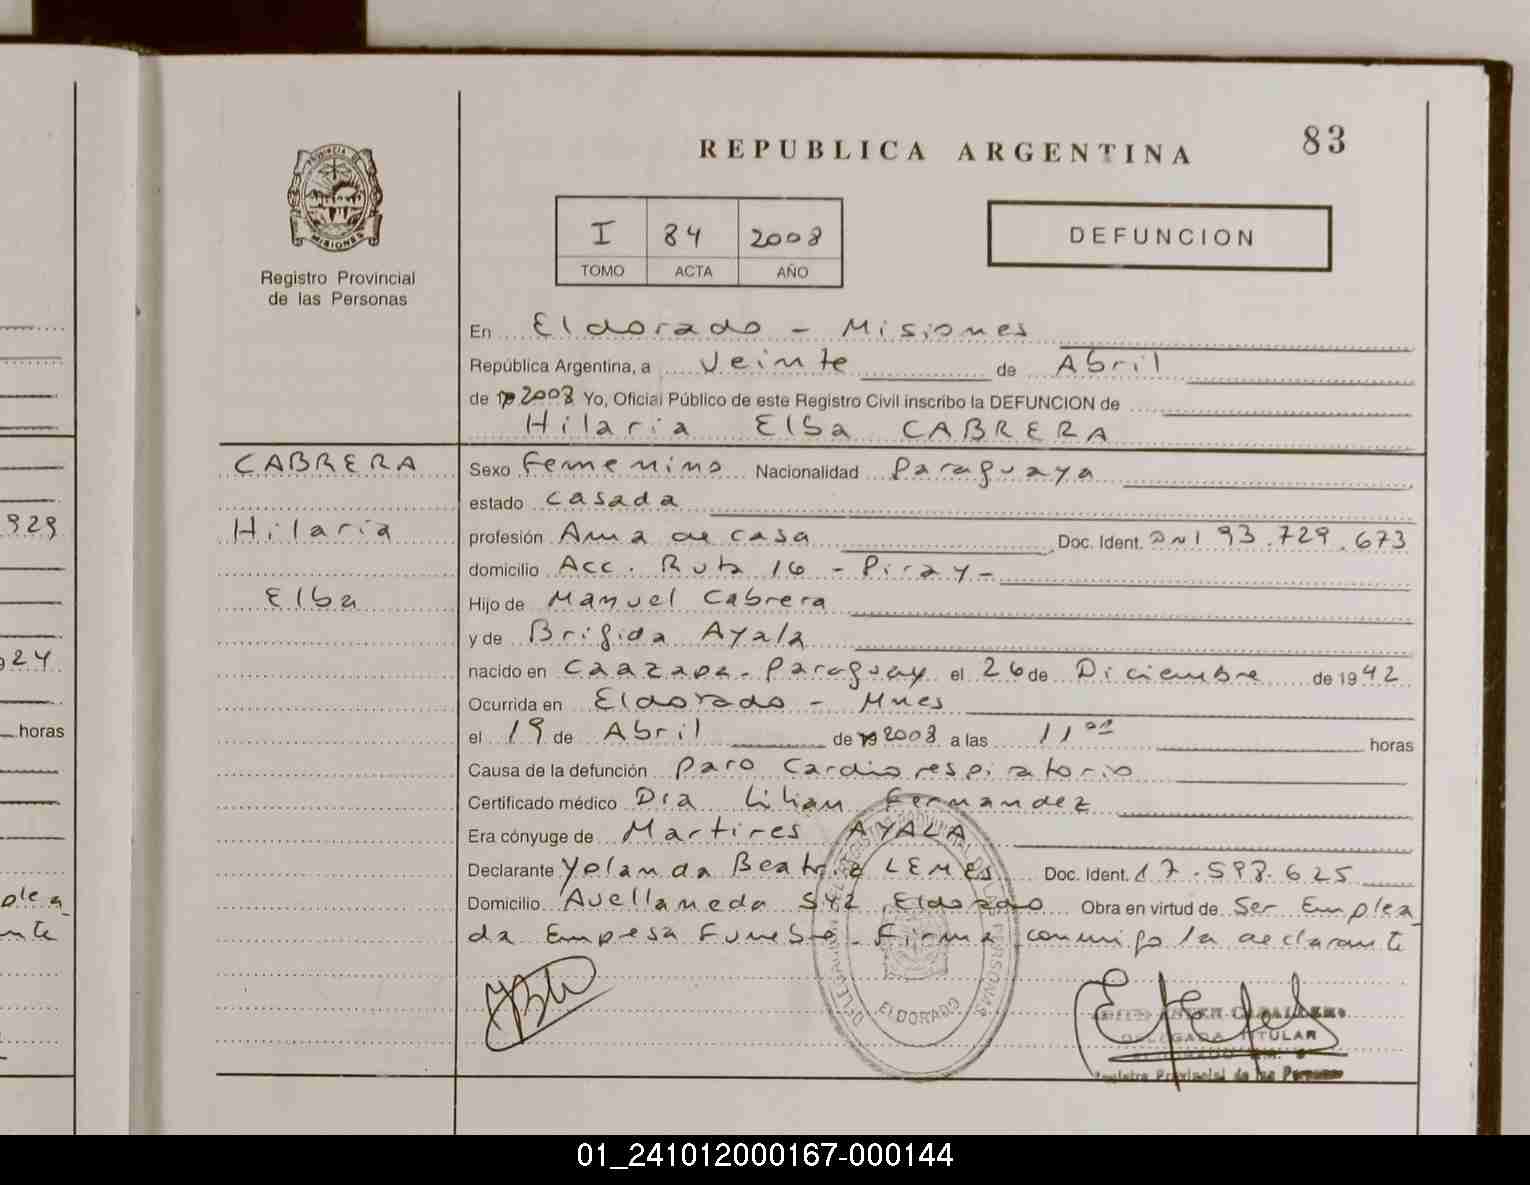 83
REPUBLICA ARGENTINA
PROVINCIA DE
MISIONES
Registro Provincial
de las Personas
I 84 2008
TOMO ACTA AÑO
DEFUNCION
En Eldorado - Misiones
República Argentina, a Veinte de Abril
de 19 2008 Yo, Oficial Público de este Registro Civil inscribo la DEFUNCION de
Hilaria Elba CABRERA
CABRERA
Hilaria
Elba
Sexo Femenino Nacionalidad Paraguaya
estado Casada
profesión Ama de casa Doc. Ident. DNI 93.729.673
domicilio Acc. Ruta 16 - Piray -
Hijo de Manuel Cabrera
y de Brigida Ayala
nacido en Caazapa - Paraguay el 26 de Diciembre de 1942
Ocurrida en Eldorado - Mnes
el 19 de Abril de 19 2008 a las 11 00 horas
Causa de la defunción Paro Cardiorespiratorio
Certificado médico Dra Lilian Fernandez
Era cónyuge de Martires AYALA
Declarante Yolanda Beatriz LEMES Doc. Ident. 17.598.625
Domicilio Avellaneda 542 Eldorado Obra en virtud de Ser Emplea
da Empresa Funebre - Firma conmigo la declarante
ELDORADO
DELEGADA TITULAR
Registro Provincial de las Personas
929
924
horas
plea
nte
01_241012000167-000144